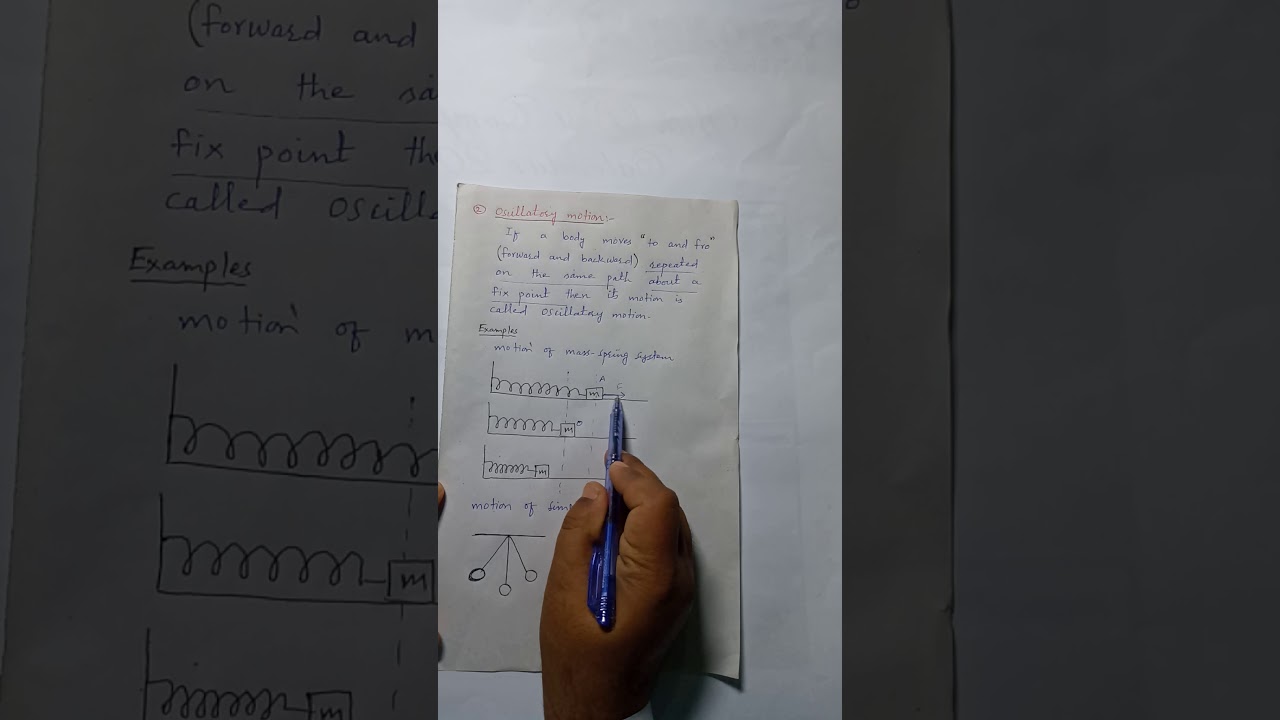 ② Oscillatory motion:-
If a body moves "to and fro"
(forward and backward) repeated
on the same path about a
fix point then its motion is
called oscillatory motion.
Examples
motion of mass-spring system
A
F
m
m
m
motion of
(forward and
on the
fix point
called
Examples
motion of
m
m